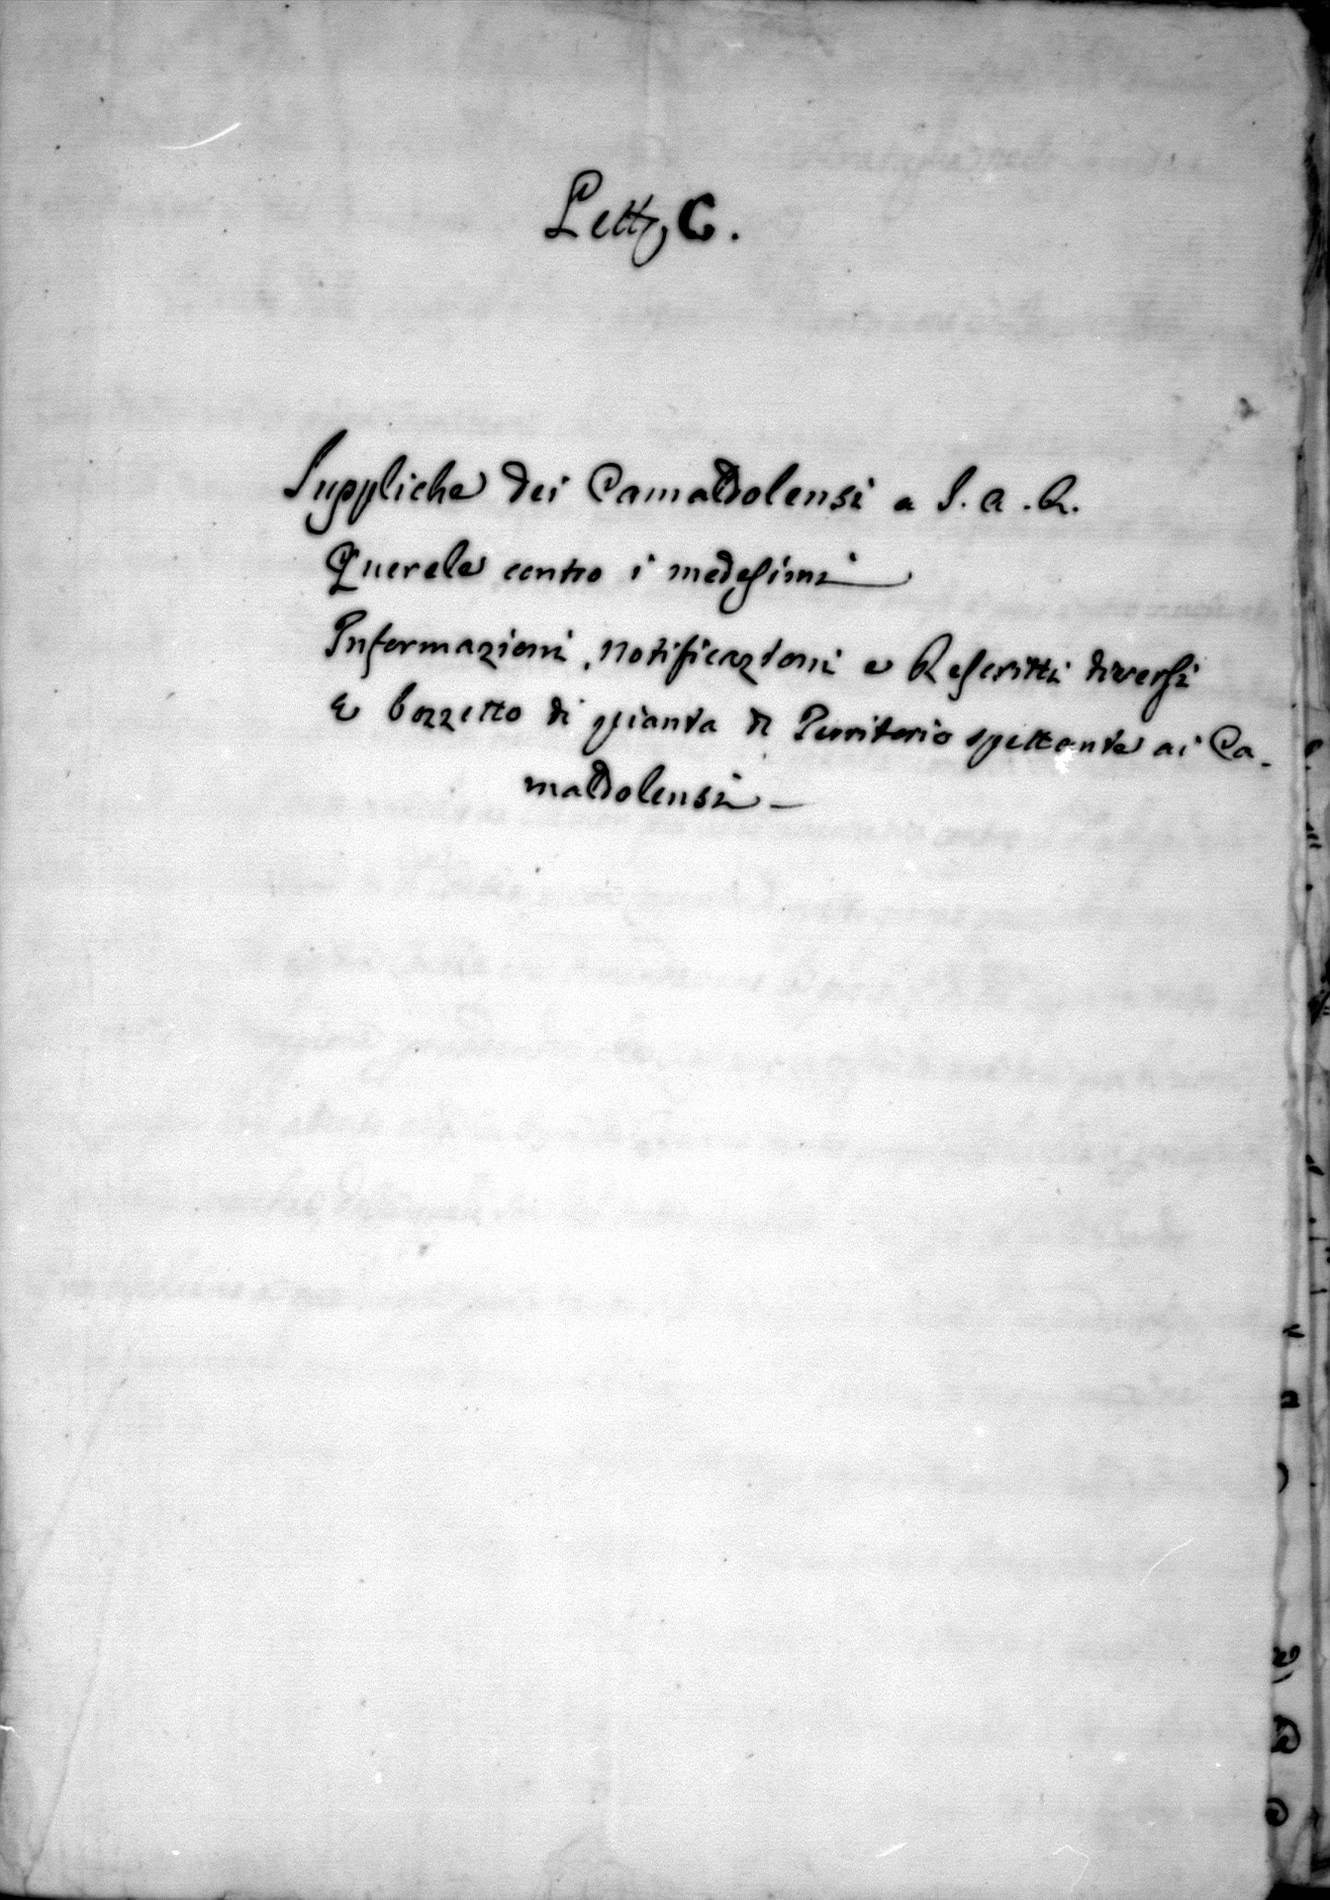 Lett, C.
Suppliche dei Camaldolensi a S. A. R.
Querele contro i medesimi
Informazioni, notificazioni e Rescritti diversi
e bozzetto di pianta di Territorio spettante ai Ca-
maldolensi -